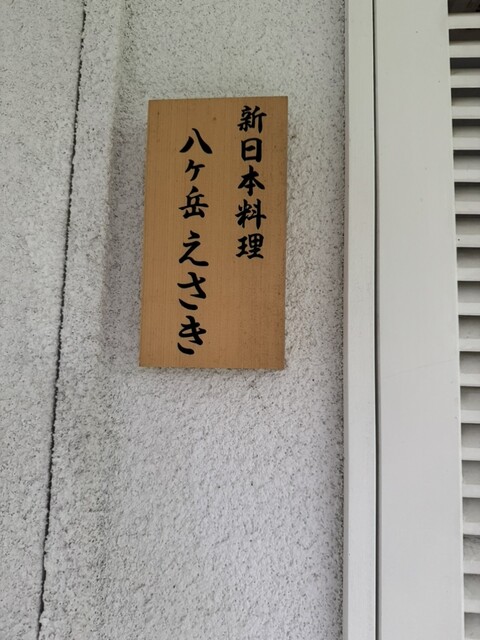 新日本料理
八ヶ岳えさき